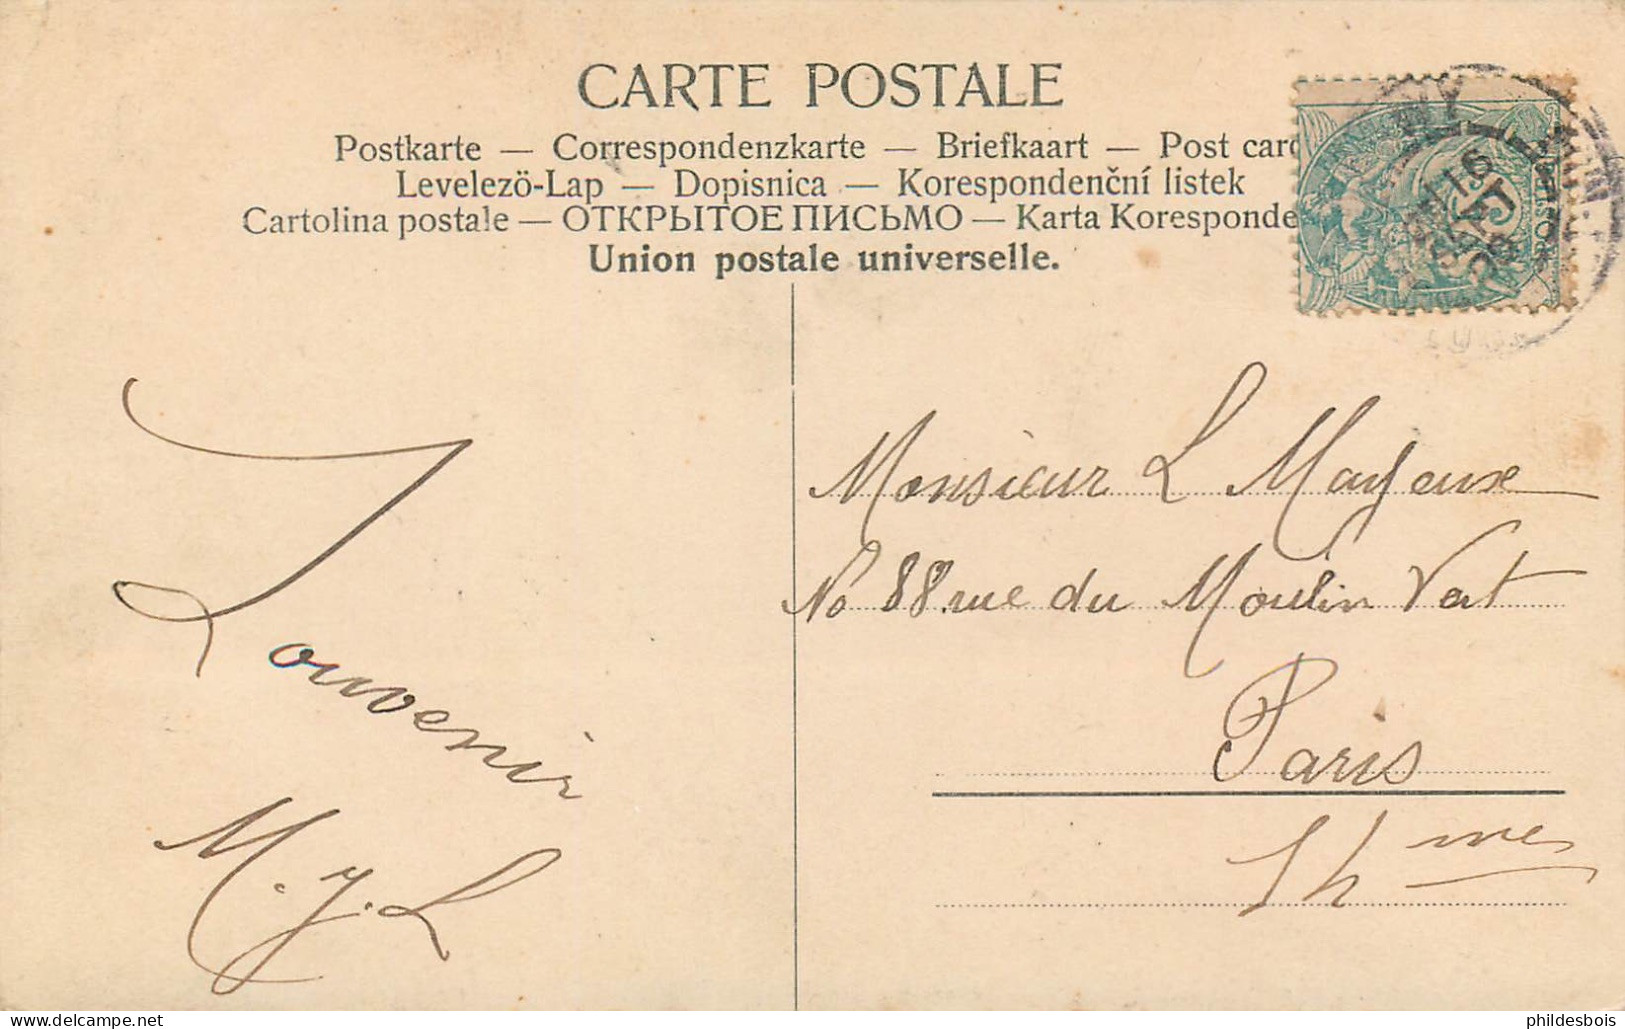 CARTE POSTALE
Postkarte — Correspondenzkarte — Briefkaart — Post card
Levelezö-Lap — Dopisnica — Korespondenční listek
Cartolina postale — ОТКРЫТОЕ ПИСЬМО — Karta Koresponde
Union postale universelle.
16
POSTE
Souvenir
M. J. L
Monsieur L Mayeux
No 88 rue du Moulin Vert
Paris
14 me
delcampe.net
phildesbois